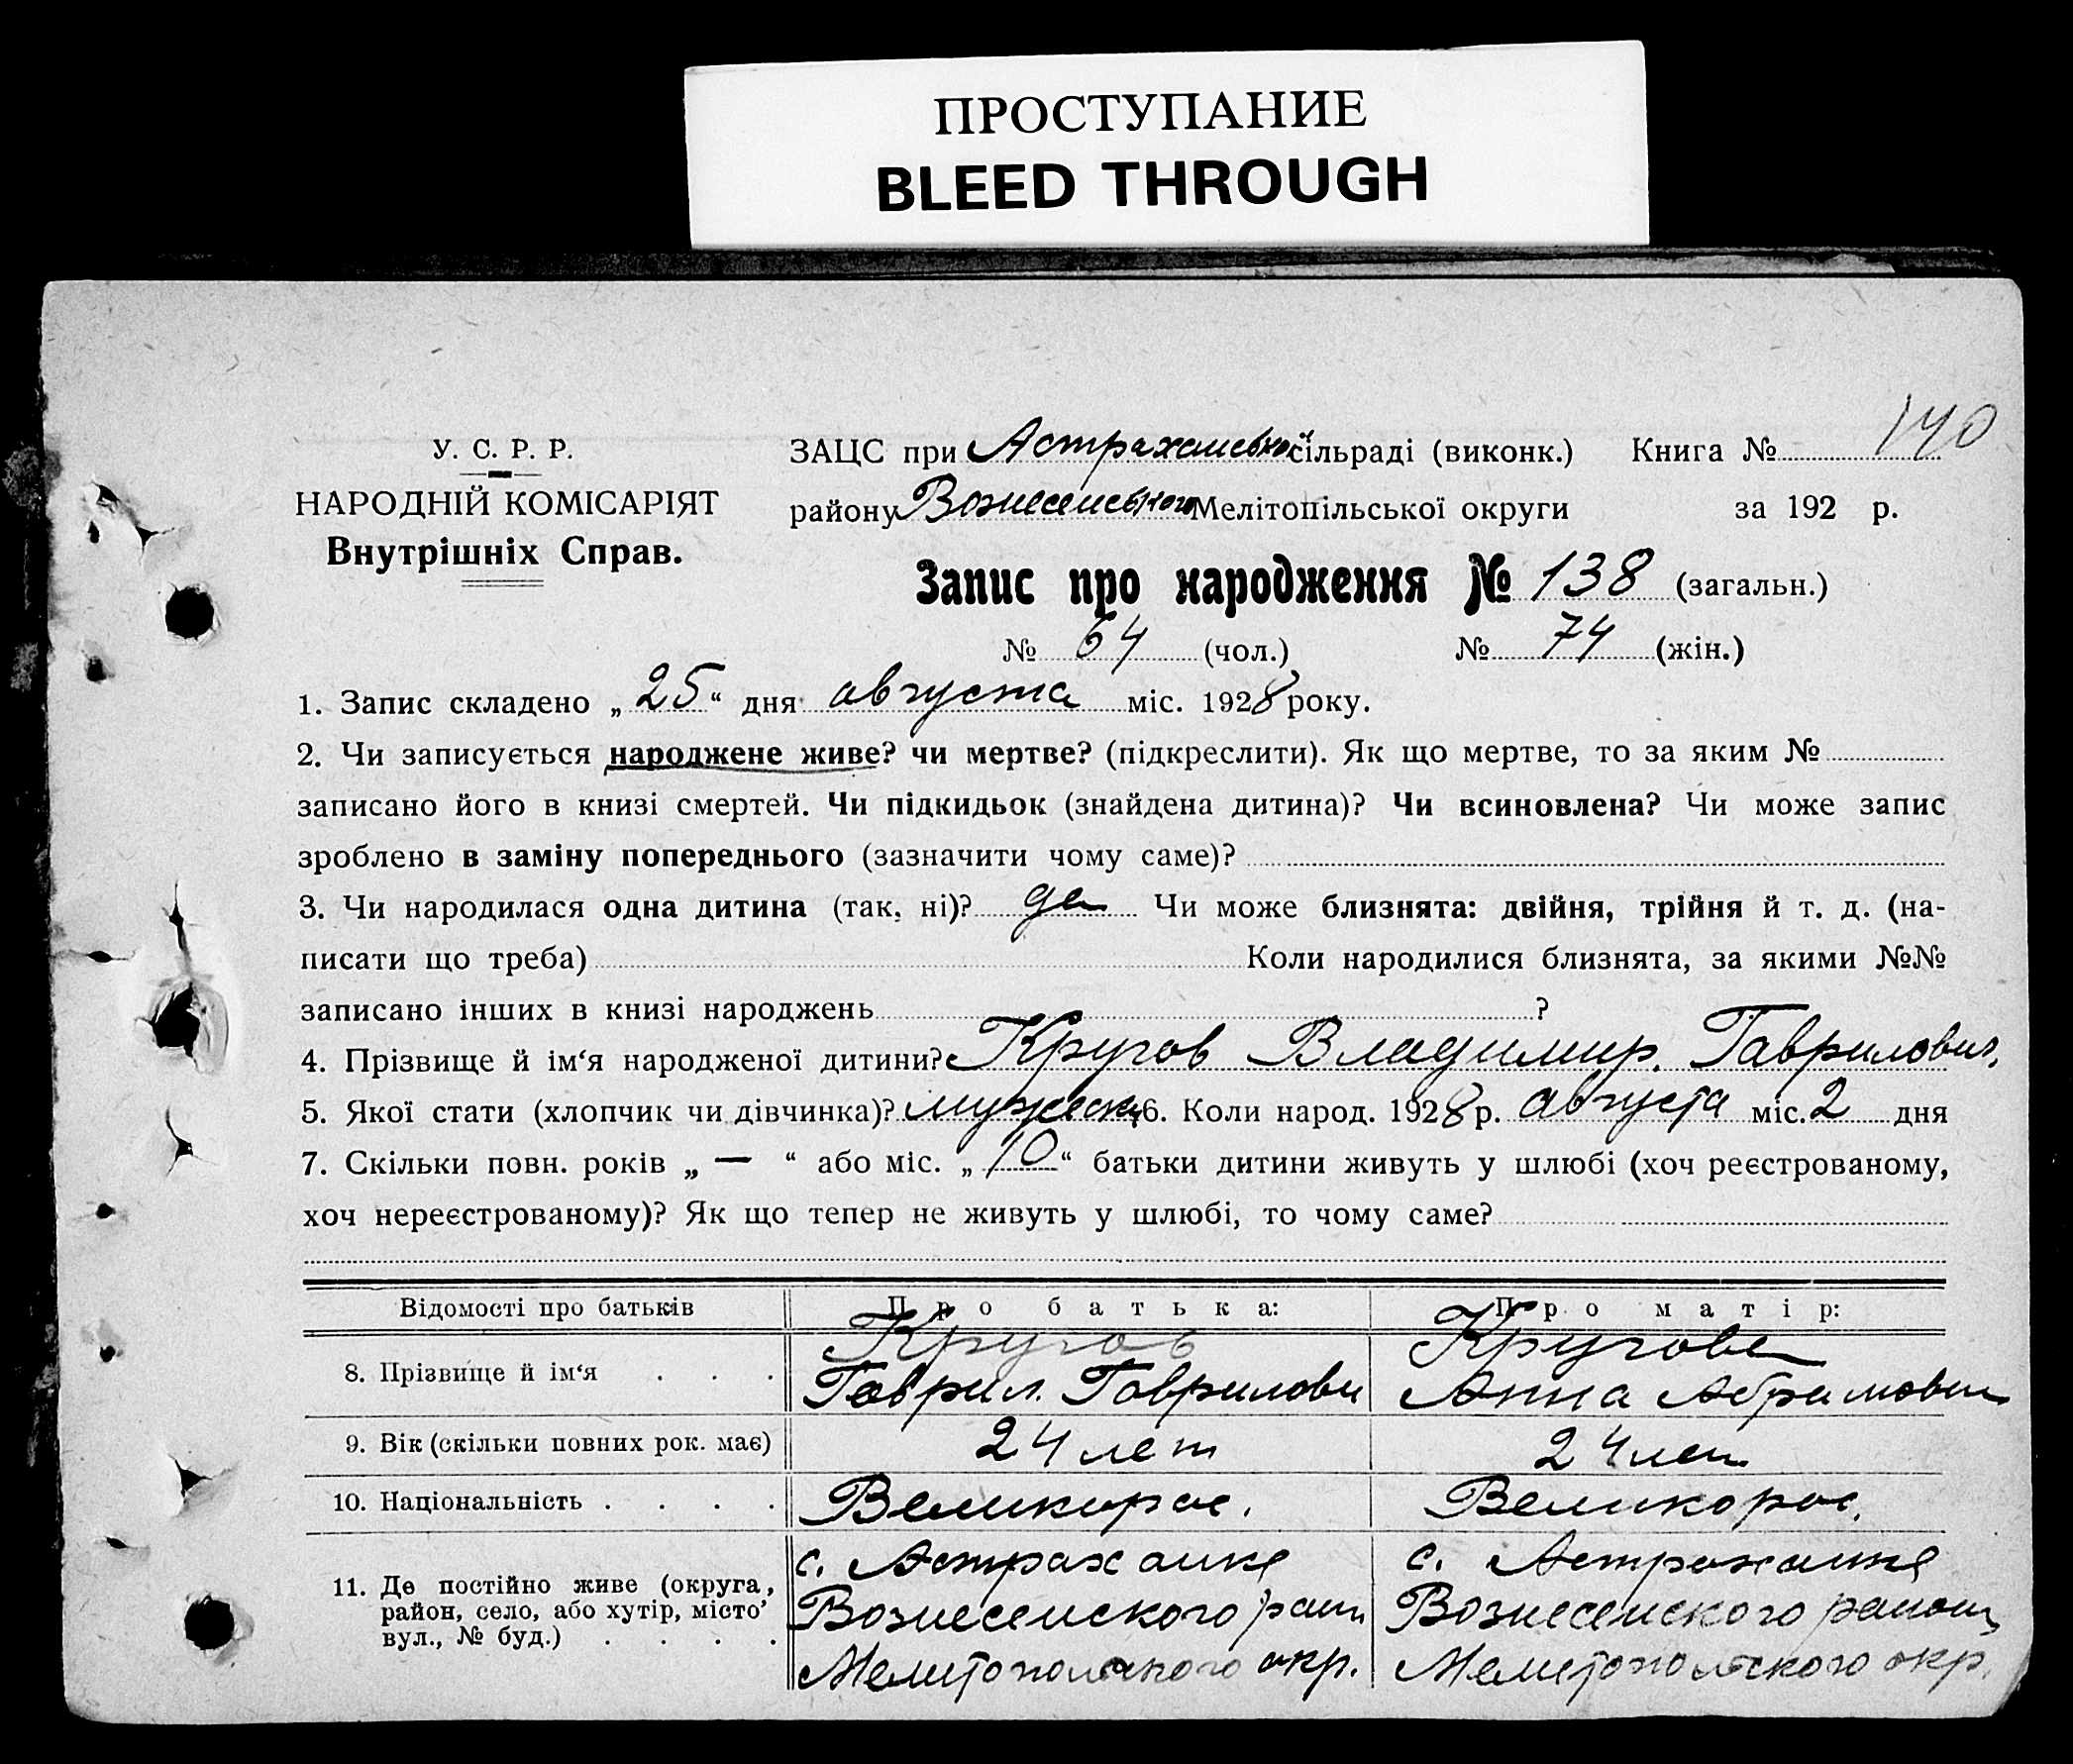 ПРОСТУПАНИЕ
BLEED THROUGH
140
У. С. Р. Р.
НАРОДНІЙ КОМІСАРІЯТ
Внутрішніх Справ.
ЗАЦС при Астраханськой сільраді (виконк.) Книга №
району Вознесенського Мелітопільської округи за 192 р.
Запис про народження № 138 (загальн.)
№ 64 (чол.) № 74 (жін.)
1. Запис складено „ 25 “ дня августа міс. 1928 року.
2. Чи записується народжене живе? чи мертве? (підкреслити). Як що мертве, то за яким №
записано його в книзі смертей. Чи підкидьок (знайдена дитина)? Чи всиновлена? Чи може запис
зроблено в заміну попереднього (зазначити чому саме)?
3. Чи народилася одна дитина (так, ні)? да Чи може близнята: двійня, трійня й т. д. (на-
писати що треба) Коли народилися близнята, за якими №№
записано інших в книзі народжень ?
4. Прізвище й ім‘я народженої дитини? Кругов Владимир. Гаврилович.
5. Якої стати (хлопчик чи дівчинка)? мужеск 6. Коли народ. 1928 р. августа міс. 2 дня
7. Скільки повн. років „ — “ або міс. „ 10 “ батьки дитини живуть у шлюбі (хоч реєстрованому,
хоч нереєстрованому)? Як що тепер не живуть у шлюбі, то чому саме?
Відомості про батьків Про батька: Про матір:
8. Прізвище й ім‘я . . . Кругов Кругова
Гаврил. Гаврилови Анна Абрамовн
9. Вік (скільки повних рок. має) 24 лет 24 лет
10. Національність . . . . Великорос. Великорос.
11. Де постійно живе (округа, район, село, або хутір, місто, вул., № буд.) . . . . с. Астраханке с. Астраханке
Вознесенского район Вознесенского района
Мелитопольского окр. Мелитопольского окр.